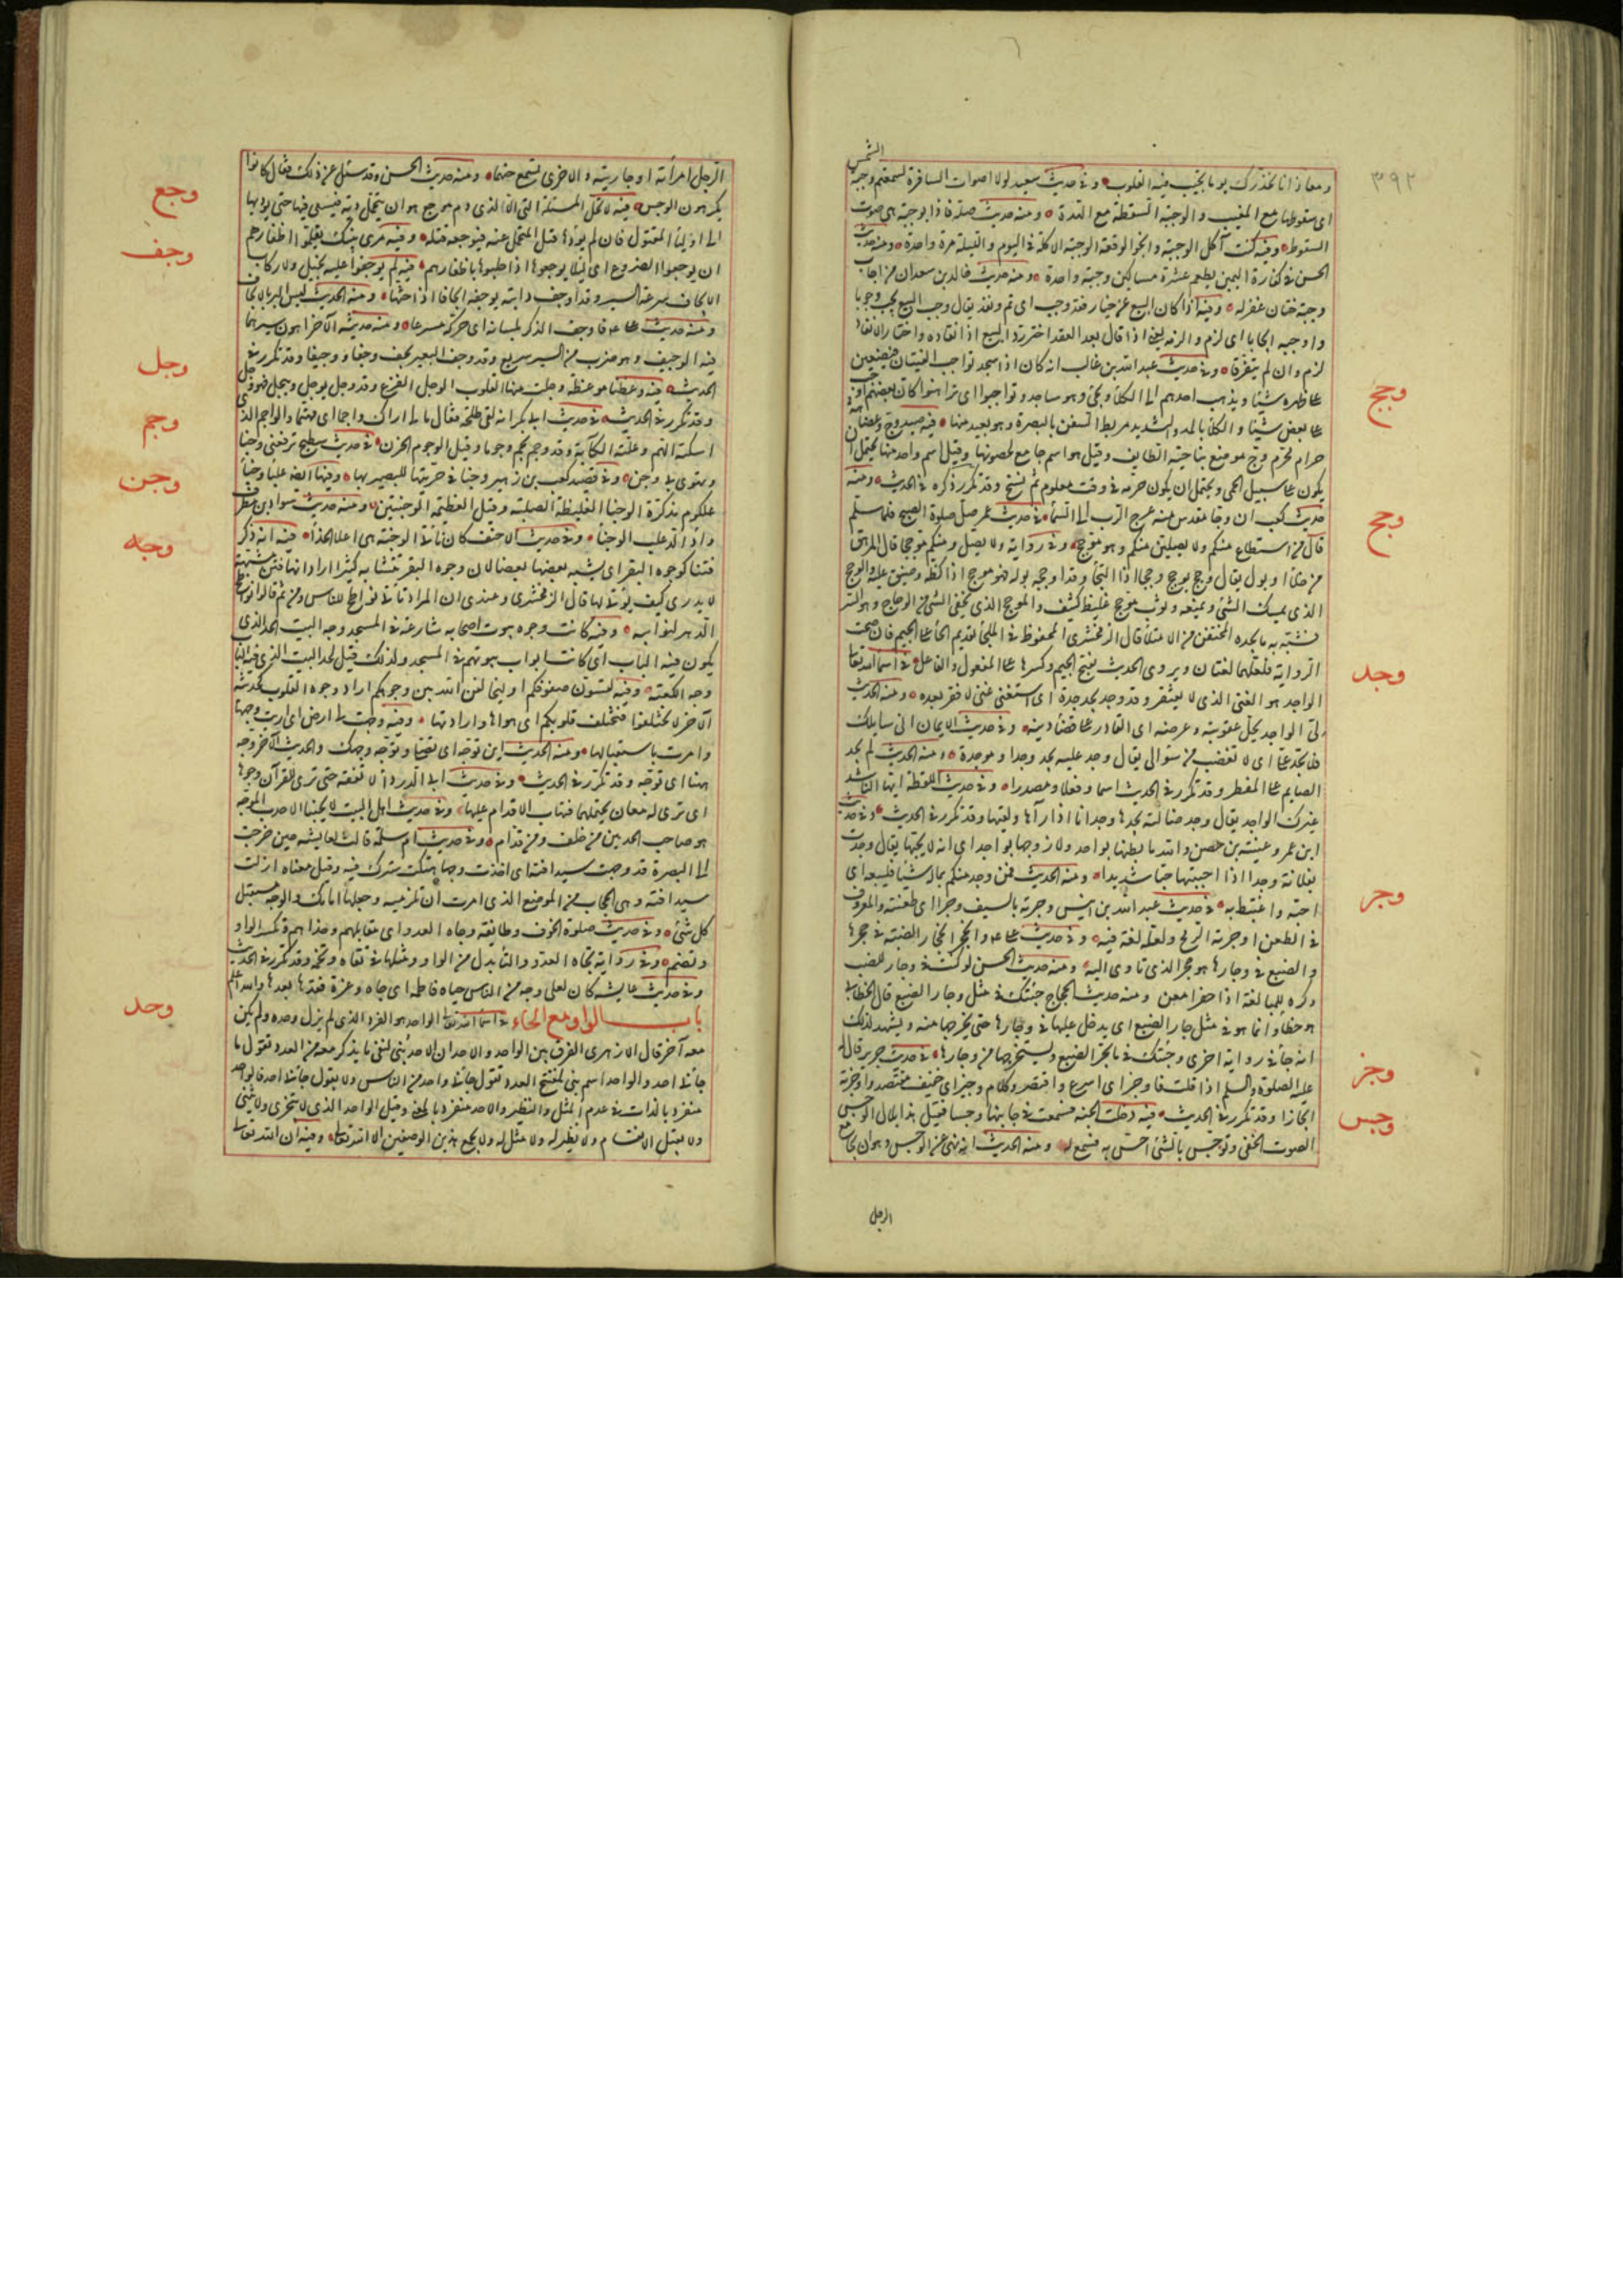 الشمس
٣٩٢
ومعاذ انا نحذرك يوما تجب فيه القلوب وفى حديث سعيد لولا اصوات السافرة لسمعتم وجبة
اى سقوطها مع المغيب والوجبة السقطة مع الهدة ومنه حديث صلة فاذا بوجبة هى صوت
السقوط وفيه كنت آكل الوجبة وانجو الوقعة الوجبة الاكلة فى اليوم والليلة مرة واحدة ومنه حديث
الحسن فى كفارة اليمين يطعم عشرة مساكين وجبة واحدة ومنه حديث خالد بن سعدان من اجاب
وجبة ختان غفر له وفيه اذا كان البيع عن خيار فقد وجب اى تم ونفذ يقال وجب البيع يجب وجوبا
واوجبه ايجابا اى لزم والزمه يعنى اذا قال بعد العقد اختر رد البيع او انفاذه واختار الانفاذ
لزم وان لم يتفرقا وفى حديث عبد الله بن غالب انه كان اذا سجد تواجب الفتيان فيضعون
على ظهره شيئا ويذهب احدهم الى الكلأ ويجئ وهو ساجد تواجبوا اى تراهنوا كان بعضهم اوجب
على بعض شيئا والكلأ بالمد والتشديد مربط السفن بالبصرة وهو بعيد منها فيه صيد وج وعضاهه
حرام محرم وج موضع بناحية الطايف وقيل هو اسم جامع لحصونها وقيل اسم واحد منها يحتمل ان
يكون على سبيل الحمى ويحتمل ان يكون حرمه فى وقت معلوم ثم نسخ وقد تكرر ذكره فى الحديث ومنه
حديث كعب ان وجا مقدس منه عرج الرب الى السمأ فى حديث عمر صلى صلوة الصبح فلما سلم
قال من استطاع منكم ولا يصلين منكم وهو موجح وفى رواية ولا يصل ومنكم موجحا قال المرهق
من خلأ او بول يقال وجح يوجح وجحا اذا التجأ وقد اوجحه بوله فهو موجح اذا كظه وضيق عليه والموجح
الذى يمسك الشئ ويمنعه وثوب موجح غليظ كثيف والموجح الذى يخفى الشئ من الوجاح وهو الستر
فشبه به ما يجده المحتقن من الامتلأ قال الزمخشرى المحفوظ فى الملجأ تقديم الحأ على الجيم فان صحت
الرواية فلعلهما لغتان ويروى الحديث بفتح الجيم وكسرها على المفعول والفاعل فى اسمأ الله تعالى
الواجد هو الغنى الذى لا يفتقر وقد وجد يجد جدة اى استغنى غنى لا فقر بعده ومنه الحديث
لى الواجد يحل عقوبته وعرضه اى القادر على قضأ دينه وفى حديث الايمان انى سايلك
فلا تجد على اى لا تغضب من سؤالى يقال وجد عليه يجد وجدا وموجدة ومنه الحديث لم يجد
الصايم على المفطر وقد تكرر فى الحديث اسما وفعلا ومصدرا وفى حديث اللقطة ايها الناشد
غيرك الواجد يقال وجد ضالته يجدها وجدانا اذا رآها ولقيها وقد تكرر فى الحديث وفى حديث
ابن عمر وعيينة بن حصن والله ما بطنها بوالد ولا زوجها بواجد اى انه لا يحبها يقال وجدت
بفلانة وجدا اذا احببتها حبا شديدا ومنه الحديث فمن وجد منكم بماله شيئا فليبعه اى
احبه واغتبط به فى حديث عبد الله بن انيس وجرته بالسيف وجرا اى طعنته والمعروف
فى الطعن اوجرته الرمح ولعله لغة فيه وفى حديث على وانجحر انجحار الضبة فى جحرها
والضبع فى وجارها هو جحرها الذى تأوى اليه ومنه حديث الحسن لو كنت فى وجار الضب
ذكره للمبالغة اذا حفر امعن ومنه حديث الحجاج جئتك فى مثل وجار الضبع قال الخطابى
هو خطأ وانما هو فى مثل جار الضبع اى يدخل عليها فى وجارها حتى يخرجها منه ويشهد لذلك
انه جأ فى رواية اخرى وجئتك فى مأ يجر الضبع ويستخرجها من وجارها فى حديث جرير قال له
عليه الصلوة والسلم اذا قلت فاوجز اى اسرع واقتصر وكلام وجيز اى خفيف مقتصد واوجزته
ايجازا وقد تكرر فى الحديث فيه دخلت الجنة فسمعت فى جانبها وجسا فقيل هذا بلال الوجس
الصوت الخفى وتوجس بالشئ احس به فتسمع له ومنه الحديث انه نهى عن الوجس وهو ان يجامع
الرجل
وجح
وجح
وجد
وجر
وجز
وجس
الرجل امرأته او جاريته والاخرى تسمع حسهما ومنه حديث الحسن وقد سئل عن ذلك فقال كانوا
يكرهون الوجس فيه لا تحل المسئلة الا لذى دم موجع هو ان يتحمل دية فيسعى فيها حتى يؤديها
الى اوليأ المقتول فان لم يؤدها قتل المتحمل عنه فيوجعه قتله وفيه مرى بنيك يقلموا اظفارهم
ان يوجعوا الضروع اى لئلا يوجعوها اذا حلبوها باظفارهم فيه لم يوجفوا عليه بخيل ولا ركاب
الايجاف سرعة السير وقد اوجف دابته يوجفها ايجافا اذا حثها ومنه الحديث ليس البر بالايجاف
ومنه حديث على واوجف الذكر بلسانه اى حركه مسرعا ومنه حديثه الآخر اهون سيرهما
فيه الوجيف وهو ضرب من السير سريع وقد وجف البعير يجف وجفا ووجيفا وقد تكرر فى
الحديث فيه وعظنا موعظة وجلت منها القلوب الوجل الفزع وقد وجل يوجل وييجل فهو وجل
وقد تكرر فى الحديث فى حديث ابى بكر انه لقى طلحة فقال ما لى اراك واجما اى مهتما والواجم الذى
اسكته الهم وعلته الكآبة وقد وجم يجم وجوما وقيل الوجوم الحزن فى حديث سطيح ترفعنى وجنا
وتهوى بى وجن وفى قصيد كعب بن زهير وجنأ فى حرتيها للبصير بها وفيها ايضا غلبأ وجنأ
علكوم مذكرة الوجنأ الغليظة الصلبة وقيل العظيمة الوجنتين ومنه حديث سواد بن مطرف
وأد الذعلب الوجنأ وفى حديث الاحنف كان ناتئ الوجنة هى اعلى الخد فيه انه ذكر
فتنا كوجوه البقر اى يشبه بعضها بعضا لان وجوه البقر تتشابه كثيرا اراد انها فتن مشتبهة
لا يدرى كيف يؤتى لها قال الزمخشرى وعندى ان المراد تأتى نواطح للناس ومن ثم قالوا نواطح
الدهر لنوائبه وفيه كانت وجوه بيوت اصحابه شارعة فى المسجد وجه البيت الحد الذى
يكون فيه الباب اى كانت ابواب بيوتهم فى المسجد ولذلك قيل لحد البيت الذى فيه الباب
وجه الكعبة وفيه لتسون صفوفكم او ليخالفن الله بين وجوهكم اراد وجوه القلوب كحديثه
الآخر لا تختلفوا فتختلف قلوبكم اى هواها وارادتها وفيه وجهت لى ارض اى اريت وجهها
وامرت باستقبالها ومنه الحديث اين توجه اى تصلى وتوجه وجهك والحديث الآخر وجه
ههنا اى توجه وقد تكرر فى الحديث وفى حديث ابى الدردأ لا تفقه حتى ترى للقرآن وجوها
اى ترى له معان يحتملها فتهاب الاقدام عليها وفى حديث اهل البيت لا يحبنا الاحدب الموجه
هو صاحب الحدبتين من خلف ومن قدام وفى حديث ام سلمة قالت لعايشة حين خرجت
الى البصرة قد وجهت سدافته اى اخذت وجها هتكت سترك فيه وقيل معناه ازلت
سدافته وهى الحجاب من الموضع الذى امرت ان تلزميه وجعلتها امامك والوجه مستقبل
كل شئ وفى حديث صلوة الخوف وطايفة وجاه العدو اى مقابلهم وحذأهم وتكسر الواو
وتضم وفى رواية تجاه العدو والتأ بدل من الواو مثلها فى تقاه وتخمة وقد تكرر فى الحديث
وفى حديث عايشة كان لعلى وجه من الناس حياة فاطمة اى جاه وعزة فقدها بعدها والله اعلم
باب الواو مع الحاء فى اسمأ الله تعالى الواحد هو الفرد الذى لم يزل وحده ولم يكن
معه آخر قال الازهرى الفرق بين الواحد والاحد ان الاحد بنى لنفى ما يذكر معه من العدد تقول ما
جأنى احد والواحد اسم بنى لمفتتح العدد تقول جأنى واحد من الناس ولا يقول جأنى احد فالواحد
منفرد بالذات فى عدم المثل والنظير والاحد منفرد بالمعنى وقيل الواحد الذى لا يتجزى ولا يثنى
ولا يقبل الانقسام ولا نظير له ولا مثل له ولا يجمع هذين الوصفين الا الله تعالى وفيه ان الله تعالى
وجع
وجف
وجل
وجم
وجن
وجه
وحد